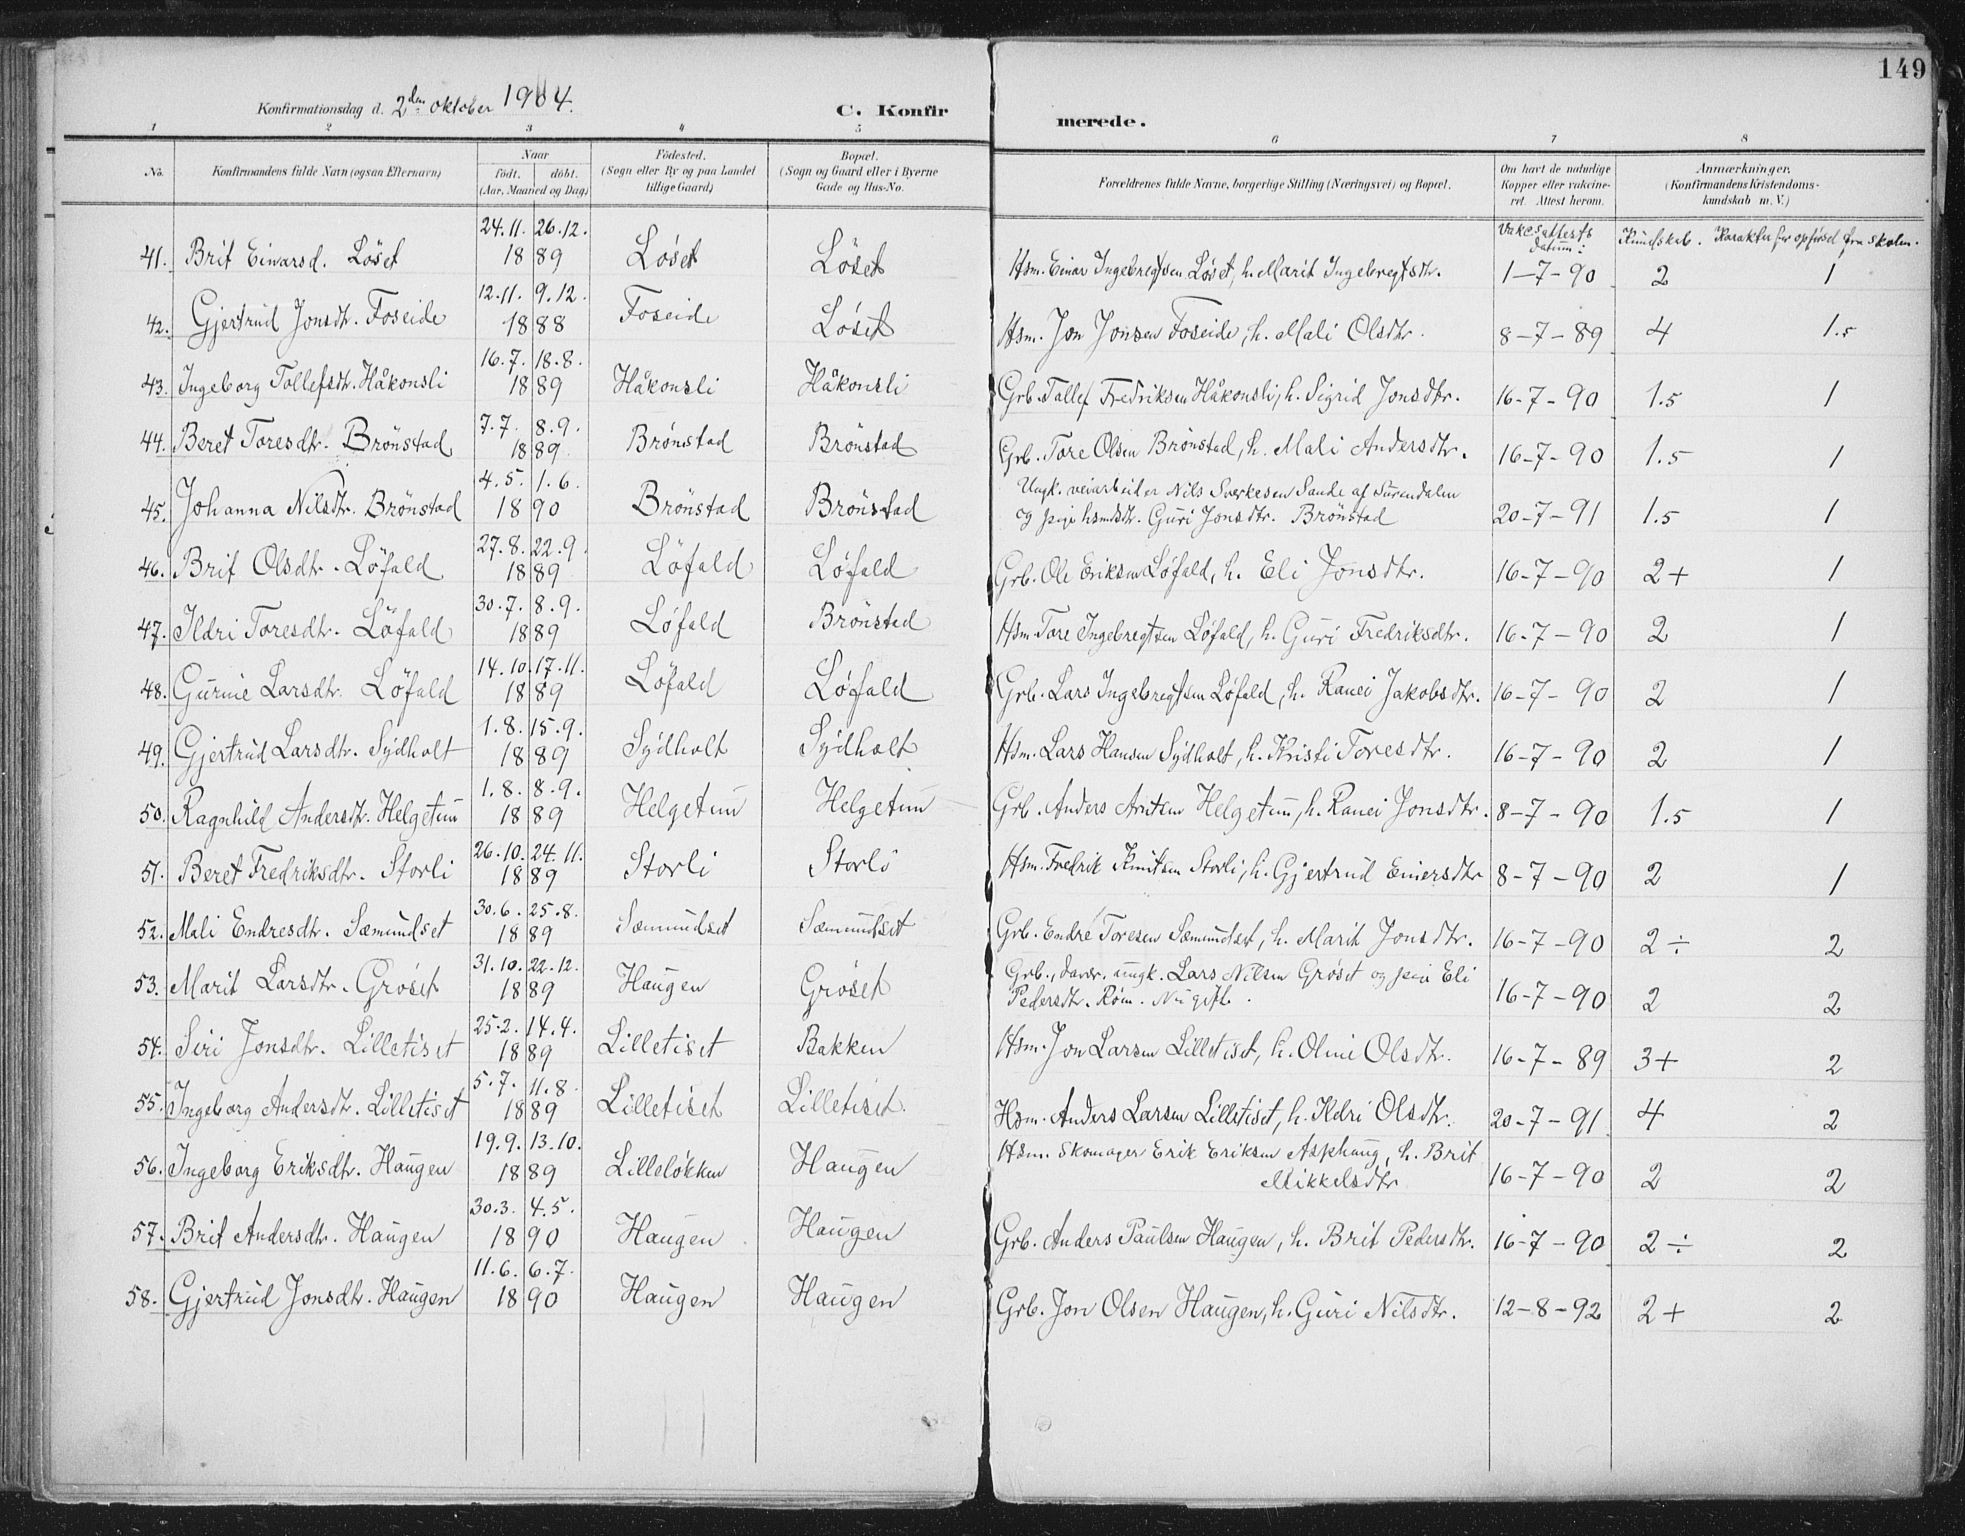 149
Konfirmationsdag d. 2den oktober 1904.
C. Konfirmerede.
1 2 3 4 5 6 7 8
No. Konfirmandens fulde Navn (ogsaa Efternavn)
Naar
født. døbt.
(Aar, Maaned og Dag)
Fødested.
(Sogn eller By og paa Landet tillige Gaard)
Bopæl.
(Sogn og Gaard eller i Byerne Gade og Hus-No.
Forældrenes fulde Navne, borgerlige Stilling (Næringsvei) og Bopæl.
Om havt de naturlige Kopper eller vakcineret. Attest herom.
Anmærkninger.
(Konfirmandens Kristendomskundskab m. V.)
Vakcsattests datum: Kundskab. Karakter for opførsel fra skolen.
41. Brit Einarsd. Löset 24.11. 26.12. 1889 Løset Löset Hsm. Einar Ingebregtsen Løset, h. Marit Ingebregtsdtr. 1-7-90 2 1
42. Gjertrud Jonsdtr. Foseide 12.11. 9.12. 1888 Foseide Løset Hsm. Jon Jonsen Foseide, h. Mali Olsdtr. 8-7-89 4 1.5
43. Ingeborg Tollefsdtr. Håkonsli 16.7. 18.8. 1889 Håkonsli Håkonsli Grb. Tollef Fredriksen Håkonsli, h. Sigrid Jonsdtr. 16-7-90 1.5 1
44. Beret Toresdtr. Brönstad 7.7. 8.9. 1889 Brönstad Brönstad Grb. Tore Olsen Brönstad, h. Mali Andersdtr. 16-7-90 1.5 1
45. Johanna Nilsdtr. Brönstad 4.5. 1.6. 1890 Brönstad Brönstad Ungk. veiarbeider Nils Sverkesen Sande af Surendalen
og pige hsmdtr. Guri Jonsdtr. Brönstad 20-7-91 1.5 1
46. Brit Olsdtr. Löfald 27.8. 22.9. 1889 Löfald Løfald Grb. Ole Eriksen Løfald, h. Eli Jonsdtr. 16-7-90 2+ 1
47. Ildri Toresdtr. Löfald 30.7. 8.9. 1889 Løfald Brönstad Hsm. Tore Ingebregtsen Løfald, h. Guri Fredriksdtr. 16-7-90 2 1
48. Gurine Larsdtr. Löfald 14.10. 17.11. 1889 Löfald Løfald Grb. Lars Ingebregtsen Løfald, h. Ranei Jakobsdtr. 16-7-90 2 1
49. Gjertrud Larsdtr. Sydholt 1.8. 15.9. 1889 Sydholt Sydholt Hsm. Lars Hansen Sydholt, h. Kristi Toresdtr. 16-7-90 2 1
50. Ragnhild Andersdtr. Helgetun 1.8. 8.9. 1889 Helgetun Helgetun Grb. Anders Arntsen Helgetun, h. Ranei Jonsdtr. 8-7-90 1.5 1
51. Beret Fredriksdtr. Storli 26.10. 24.11. 1889 Storli Storli Hsm. Fredrik Knutsen Storli, h. Gjertrud Einersdtr 8-7-90 2 1
52. Mali Endresdtr. Sæmundset 30.6. 25.8. 1889 Sæmundset Sæmundset Grb. Endre Toresen Sæmundset, h. Marit Jonsdtr. 16-7-90 2÷ 2
53. Marit Larsdtr. Grøset 31.10. 22.12. 1889 Haugen Grøset Grb., davær. ungk. Lars Nilsen Grøset og pige Eli
Pedersdtr. Röm. Nu gifte. 16-7-90 2 2
54. Siri Jonsdtr. Lilletiset 25.2. 14.4. 1889 Lilletiset Bakken Hsm. Jon Larsen Lilletiset, h. Oline Olsdtr. 16-7-89 3+ 2
55. Ingeborg Andersdtr. Lilletiset 5.7. 11.8. 1889 Lilletiset Lilletiset. Hsm. Anders Larsen Lilletiset, h. Ildri Olsdtr. 20-7-91 4 2
56. Ingeborg Eriksdtr. Haugen 19.9. 13.10. 1889 Lilleløkken Haugen Hsm. Skomager Erik Eriksen Asphaug, h. Brit
Mikkelsdtr 16-7-90 2 2
57. Brit Andersdtr. Haugen 30.3. 4.5. 1890 Haugen Haugen Grb. Anders Paulsen Haugen, h. Brit Pedersdtr. 16-7-90 2÷ 2
58. Gjertrud Jonsdtr. Haugen 11.6. 6.7. 1890 Haugen Haugen Grb. Jon Olsen Haugen, h. Guri Nilsdtr. 12-8-92 2+ 2